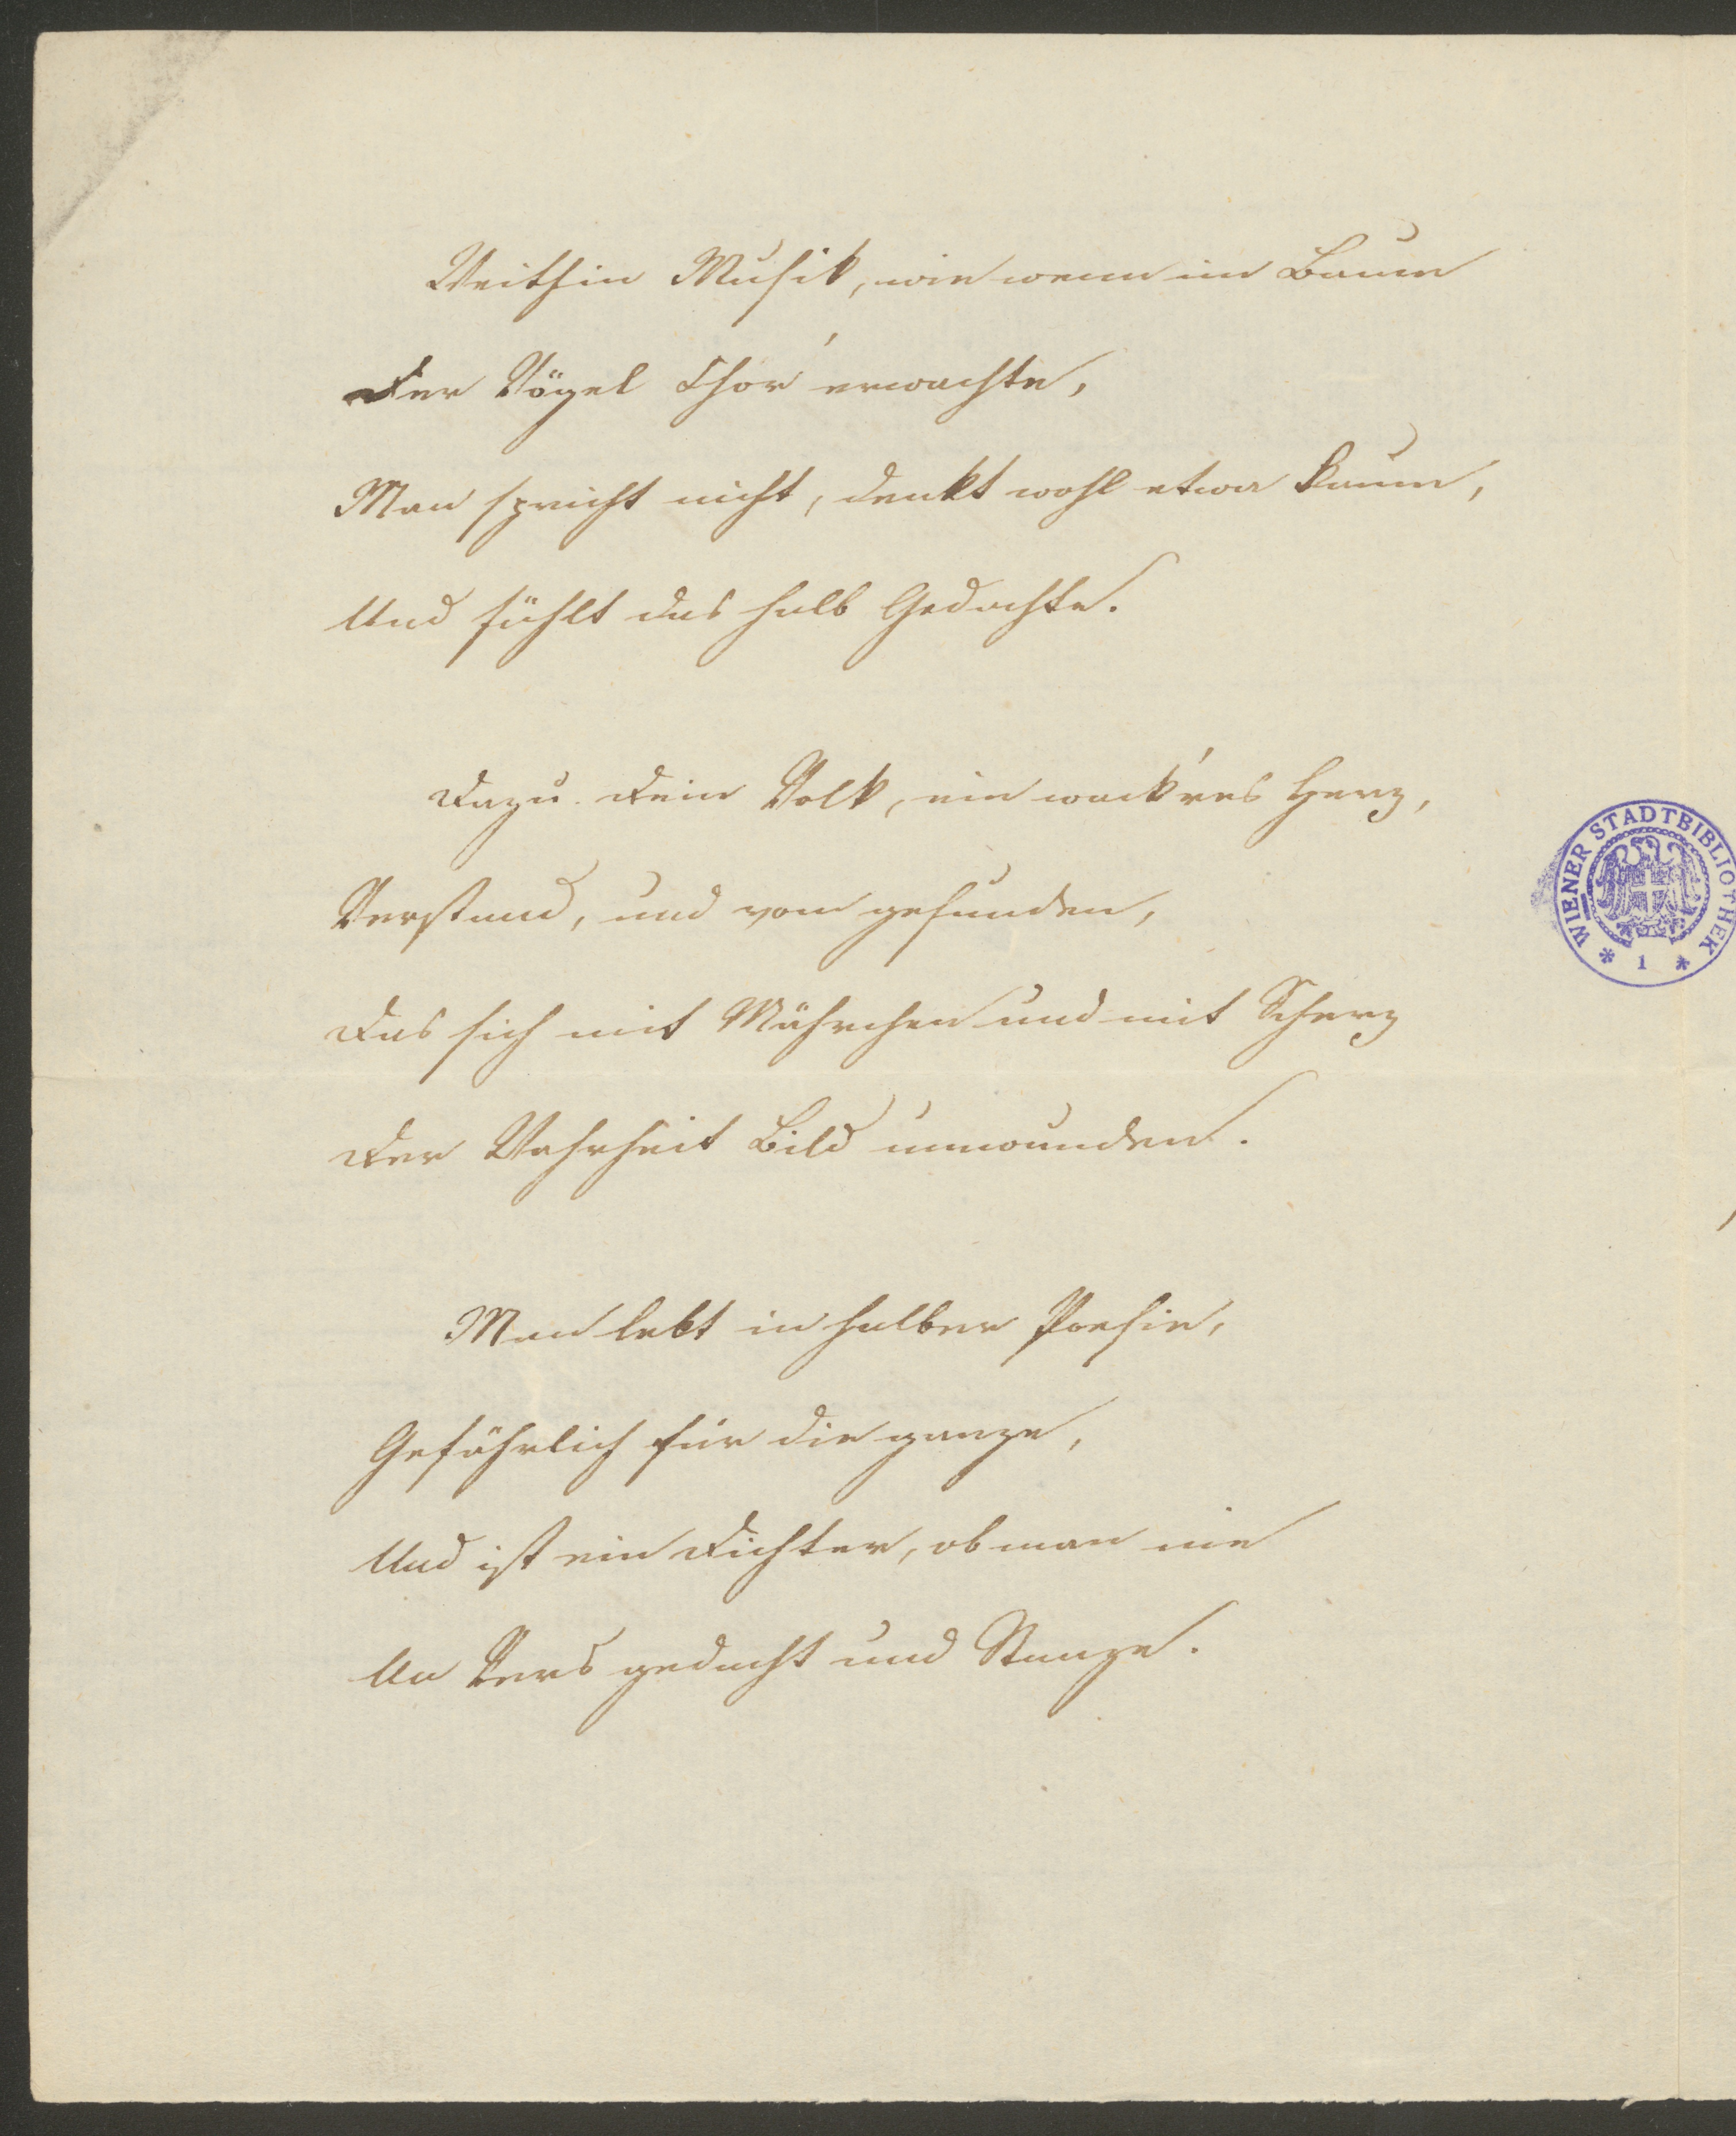 Weithin Musik, wie wenn im Baum
Der Vögel Chor erwachte,
Man spricht nicht, denkt wohl etwa kaum,
Und fühlt das halb Gedachte.
Dazu Dein Volk, ein wack'res Herz,
Verstand, und vom gesunden,
Das sich mit Mährchen und mit Scherz
Der Wahrheit Bild umwunden.
Man lebt in halber Poesie,
Gefährlich für die ganze,
Und ist ein Dichter, ob man nie
An Vers gedacht und Stanze.
WIENER STADTBIBLIOTHEK
* 1 *